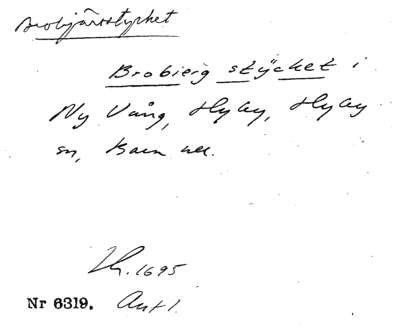 Brobjärsstycket
Brobierg stÿcket i
Ny Vång, Hyby, Hyby
sn, Bara hd.
Lh. 1695
Nr 6319. Ant 1.